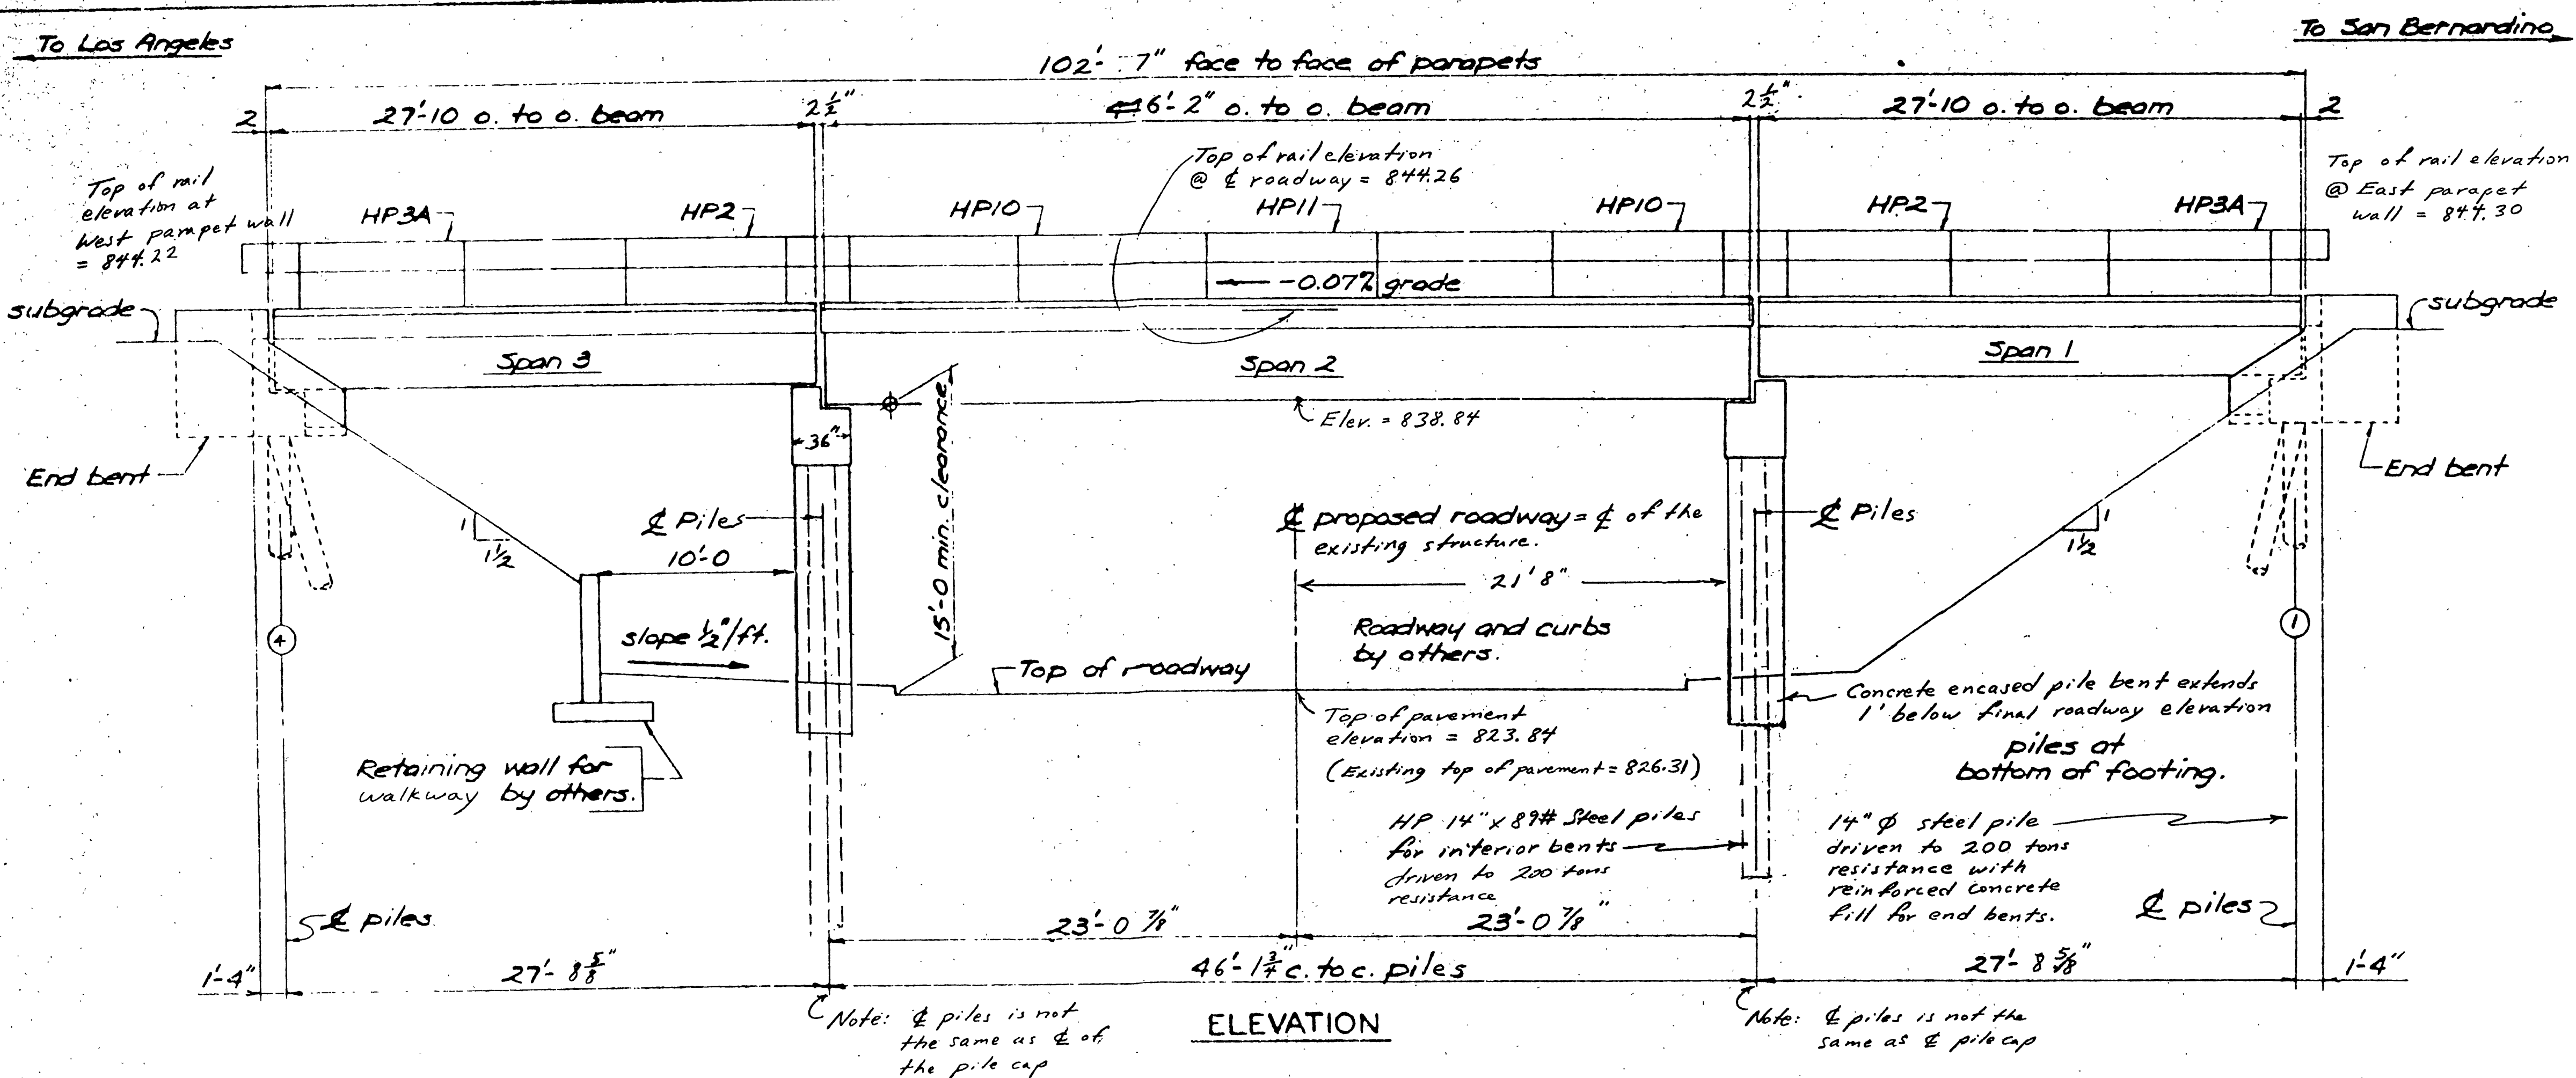 To Los Angeles
To San Bernardino
102'-7" face to face of parapets
2
27'-10 o. to o. beam
2 1/2"
46'-2" o. to o. beam
2 1/2"
27'-10 o. to o. beam
2
Top of rail
elevation at
West parapet wall
= 844.22
Top of rail elevation
@ ℄ roadway = 844.26
Top of rail elevation
@ East parapet
wall = 844.30
HP3A
HP2
HP10
HP11
HP10
HP2
HP3A
-0.07% grade
subgrade
subgrade
Span 3
Span 2
Span 1
Elev. = 838.84
36"
15'-0 min. clearance
End bent
End bent
1
1 1/2
℄ Piles
10'-0
℄ proposed roadway = ℄ of the
existing structure.
21'8"
℄ Piles
1
1 1/2
4
slope 1/2"/ft.
Roadway and curbs
by others.
1
Top of roadway
Concrete encased pile bent extends
1' below final roadway elevation
Top of pavement
elevation = 823.84
(Existing top of pavement = 826.31)
piles at
bottom of footing.
Retaining wall for
walkway by others.
HP 14" x 89# Steel piles
for interior bents
driven to 200 tons
resistance
14" ϕ steel pile
driven to 200 tons
resistance with
reinforced concrete
fill for end bents.
℄ piles
℄ piles
23'-0 7/8"
23'-0 7/8"
1'-4"
27'-8 5/8"
46'-1 3/4" c. to c. piles
27'-8 5/8"
1'-4"
Note: ℄ piles is not
the same as ℄ of
the pile cap
ELEVATION
Note: ℄ piles is not the
same as ℄ pile cap